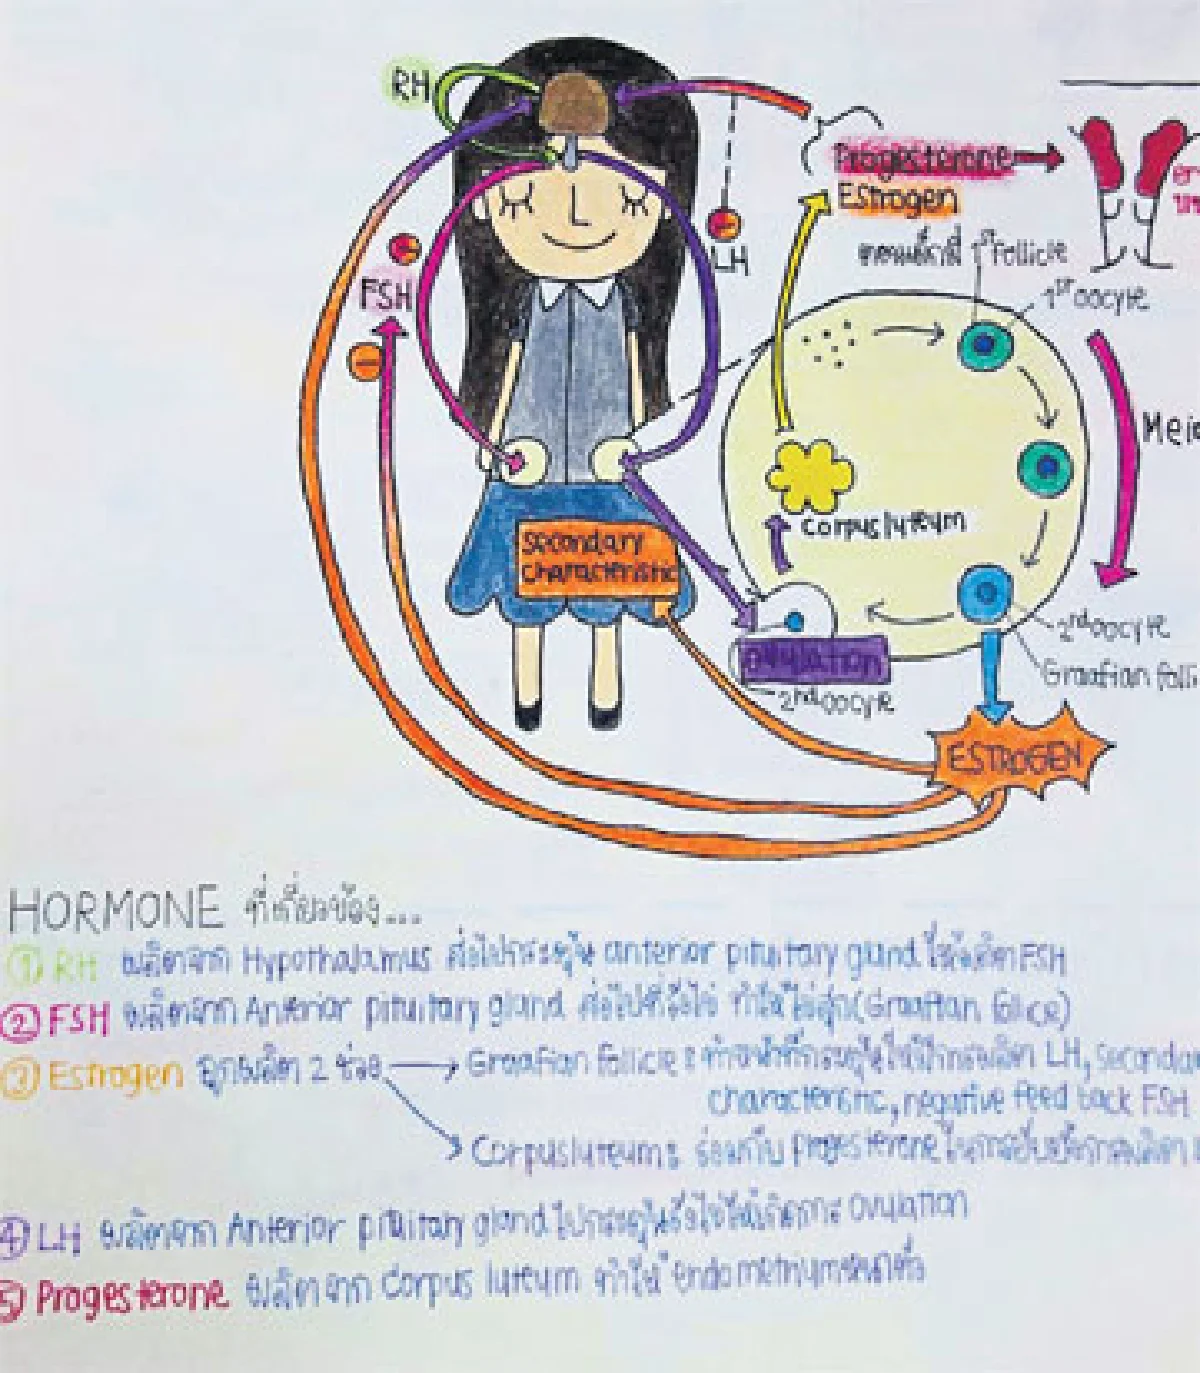 RH
Progesterone
Estrogen
FSH
LH
1st follicle
1st oocyte
Corpus luteum
Secondary
characteristic
2nd oocyte
Ovulation
Graafian
2nd oocyte
ESTROGEN
HORMONE ที่เกี่ยวข้อง...
① RH ผลิตจาก Hypothalamus ส่งไปกระตุ้น anterior pituitary gland ให้ผลิต FSH
② FSH ผลิตจาก Anterior pituitary gland ส่งไปที่รังไข่ ทำให้ไข่สุก (Graafian follice)
③ Estrogen ถูกผลิต 2 ช่วง → Graafian follicle : ทำหน้าที่กระตุ้นให้มีการผลิต LH,
characteristic, negative feed back FSH
Corpusluteum : ร่วมกับ progesterone ในการยับยั้งการผลิต
④ LH ผลิตจาก Anterior pituitary gland ไปกระตุ้นรังไข่ให้เกิดการ ovulation
⑤ Progesterone ผลิตจาก Corpus luteum ทำให้ endometrium หนาตัว